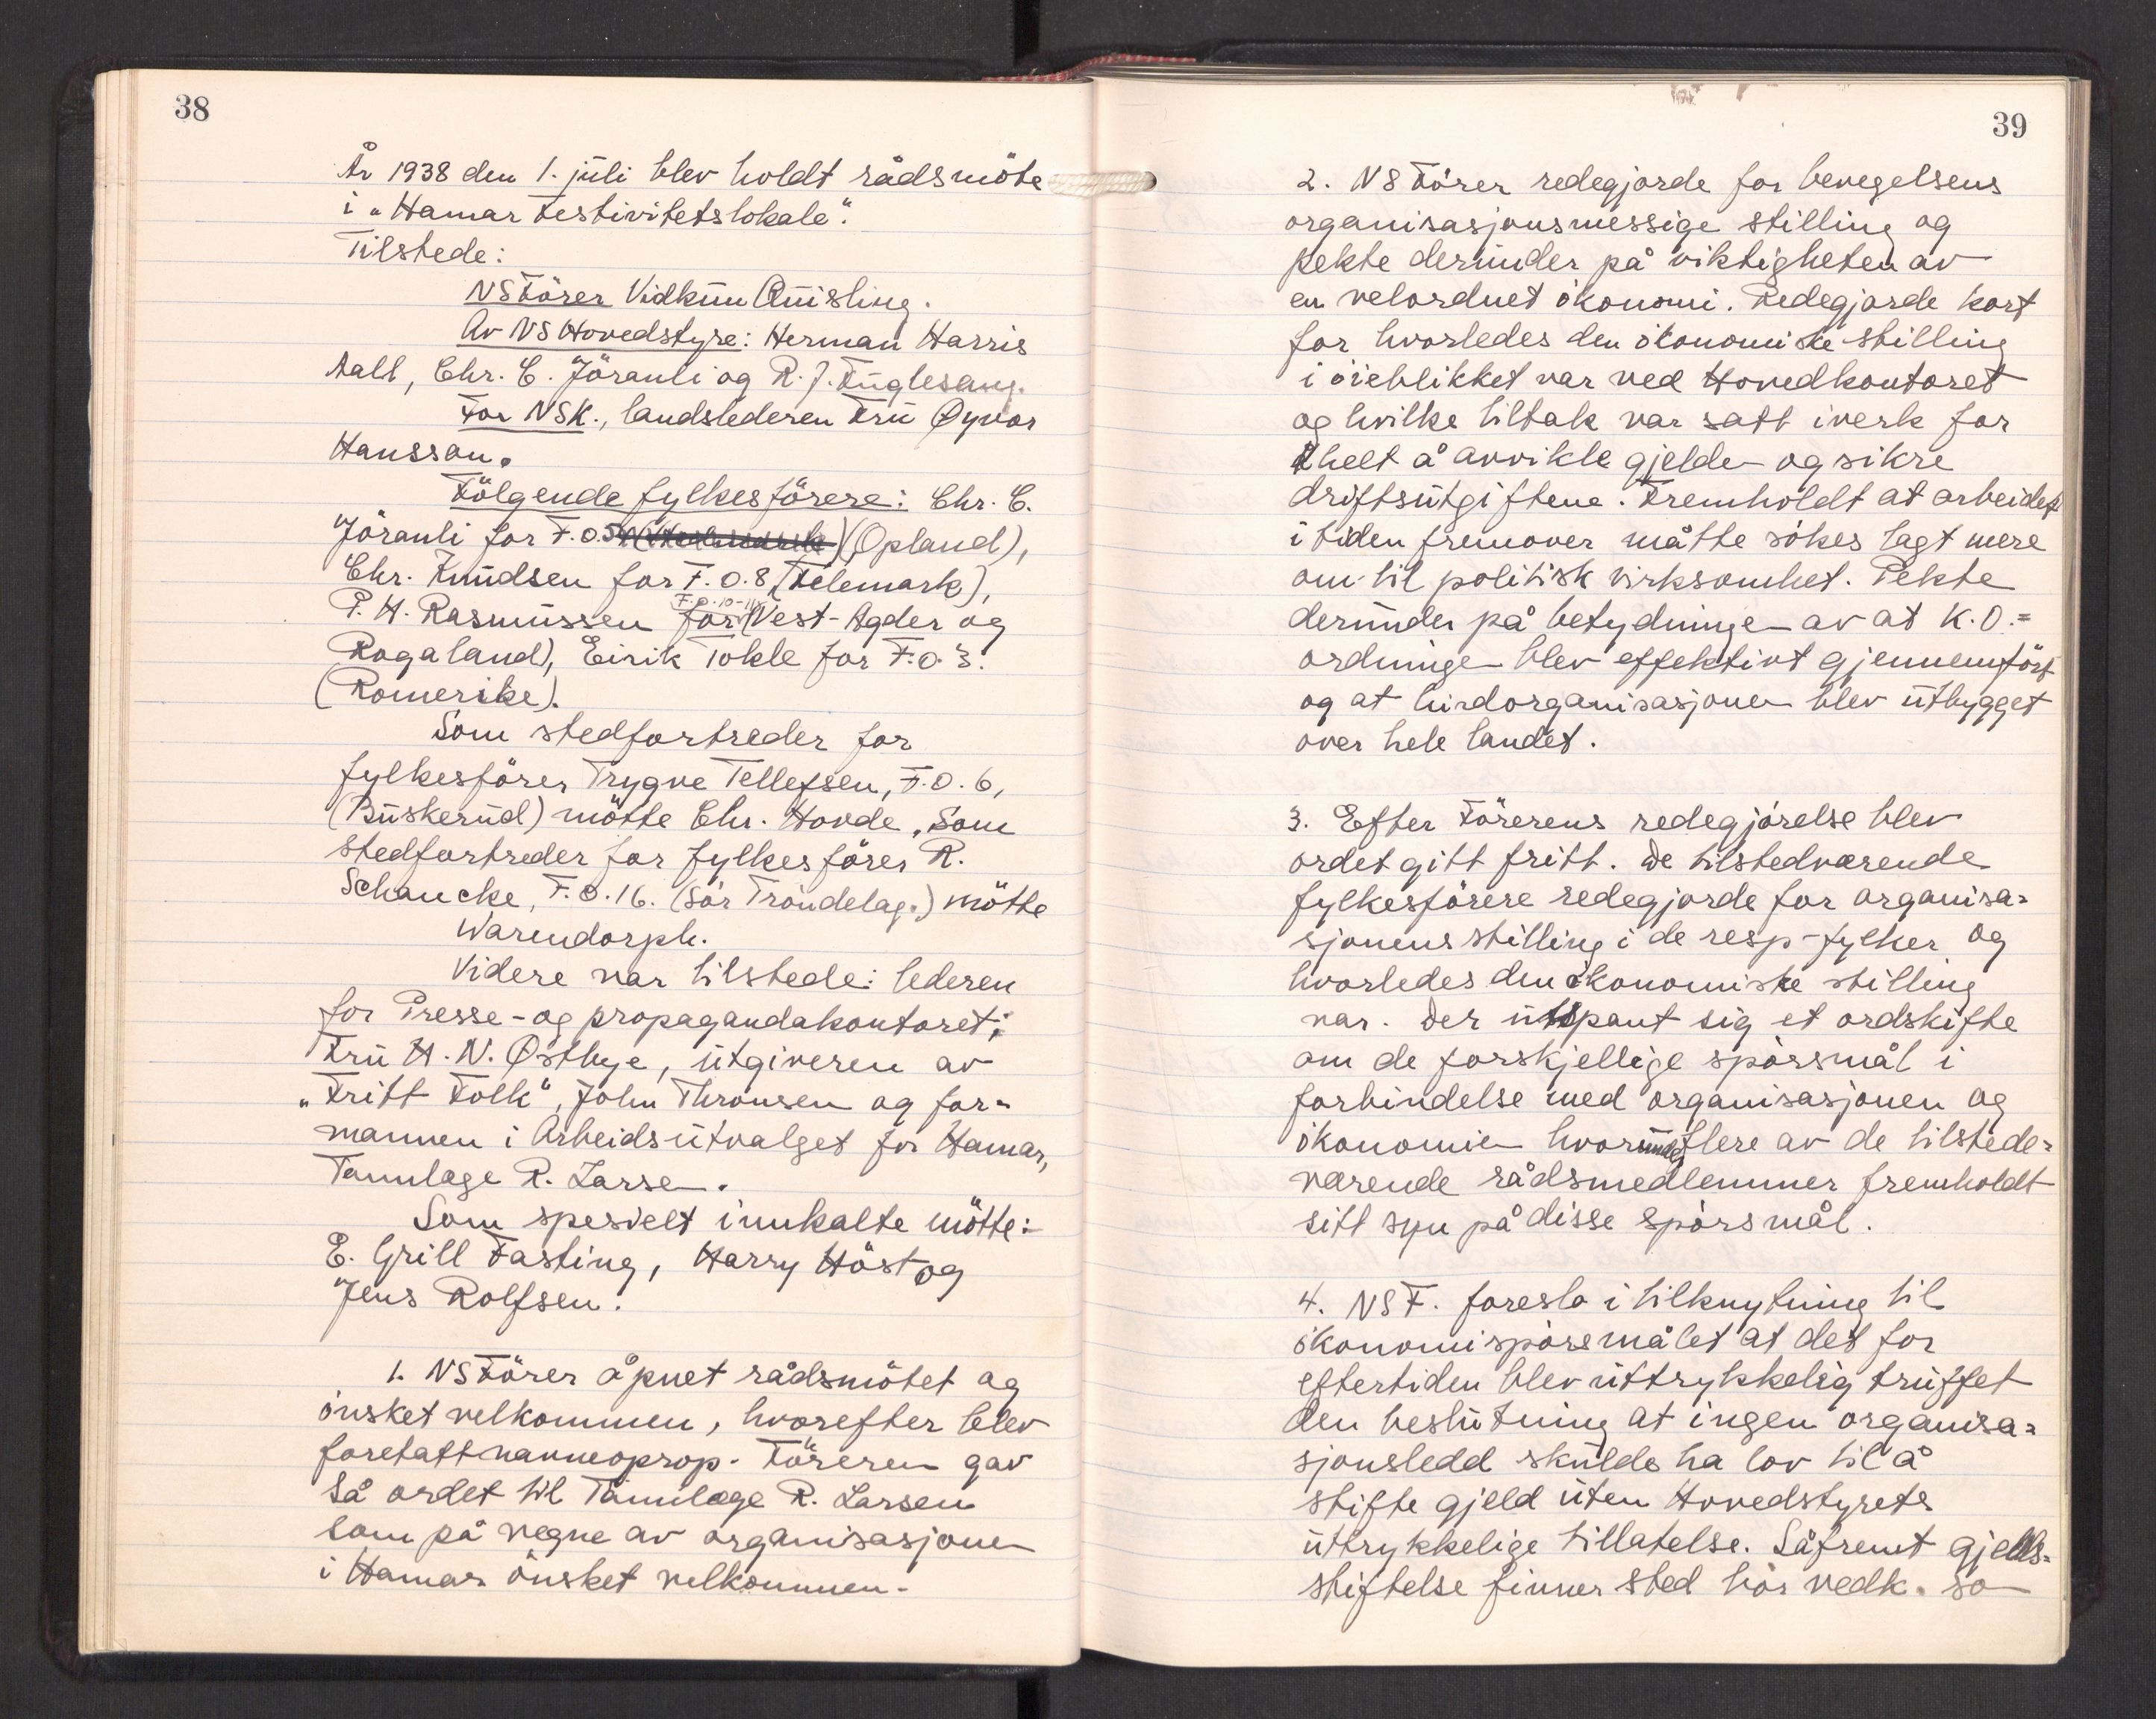 38
År 1938 den 1. juli blev holdt rådsmöte
i "Hamar Festivitetslokale".
Tilstede:
NS Förer Vidkun Quisling.
Av NS Hovedstyre: Herman Harris
Aall, Chr. C. Jöranli og R. J. Fuglesang.
For NSK., landslederen Fru Øyvor
Hansson.
Fölgende fylkesförere: Chr. C.
Jöranli for F.O. 5 (Opland),
Chr. Knudsen for F.O. 8 (Telemark),
F.O. 10-11
P. H. Rasmussen for (Vest-Agder og
Rogaland), Eirik Tokle for F.O. 3.
(Romerike).
Som stedfortreder for
fylkesförer Trygve Tellefsen, F.O. 6,
(Buskerud) mötte Chr. Hovde, Som
stedfortreder for fylkesförer R.
Schancke, F.O. 16. (Sör Tröndelag.) mötte
Warendorph.
Videre var tilstede: lederen
for Presse- og propagandakontoret;
Fru H. N. Østbye, utgiveren av
"Fritt Folk", John Thronsen og for=
mannen i Arbeidsutvalget for Hamar,
Tannlæge R. Larsen.
Som spesielt innkalte mötte:
E. Grill Fasting, Harry Höst og
Jens Rolfsen.
1. NS Förer åpnet rådsmötet og
önsket velkommen, hvorefter blev
foretatt navneoprop. Föreren gav
så ordet til Tannlæge R. Larsen
som på vegne av organisasjonen
i Hamar önsket velkommen.
39
2. NS Förer redegjorde for bevegelsens
organisasjonsmessige stilling og
pekte derunder på viktigheten av
en velordnet ökonomi. Redegjorde kort
for hvorledes den ökonomiske stilling
i öieblikket var ved Hovedkontoret
og hvilke tiltak var satt iverk for
helt å avvikle gjelden og sikre
driftsutgiftene. Fremholdt at arbeidet
i tiden fremover måtte sökes lagt mere
om til politisk virksomhet. Pekte
derunder på betydningen av at K.O.=
ordningen blev effektivt gjennemfört
og at hirdorganisasjonen blev utbygget
over hele landet.
3. Efter Förerens redegjörelse blev
ordet gitt fritt. De tilstedværende
fylkesförere redegjorde for organisa=
sjonens stilling i de resp. fylker og
hvorledes den ökonomiske stilling
var. Der utspant sig et ordskifte
om de forskjellige spörsmål i
forbindelse med organisasjonen og
ökonomien hvorunder flere av de tilstede=
værende rådsmedlemmer fremholdt
sitt syn på disse spörsmål.
4. NS F. foreslo i tilknytning til
ökonomispörsmålet at det for
eftertiden blev uttrykkelig truffet
den beslutning at ingen organisa=
sjonsledd skulde ha lov til å
stifte gjeld uten Hovedstyrets
uttrykkelige tillatelse. Såfremt gjelds=
stiftelse finner sted bör vedk. so